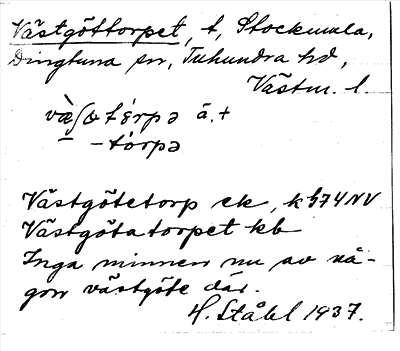 Västgöttorpet, t, Stockumla,
Dingtuna sn, Tuhundra hd,
Västm. l.
væ̀ʃötórpə ä.+
-tórpə
Västgötetorp ek, k 574NV
Västgötatorpet kb
Inga minnen nu av nå-
gon västgöte där.
H. Ståhl 1937.